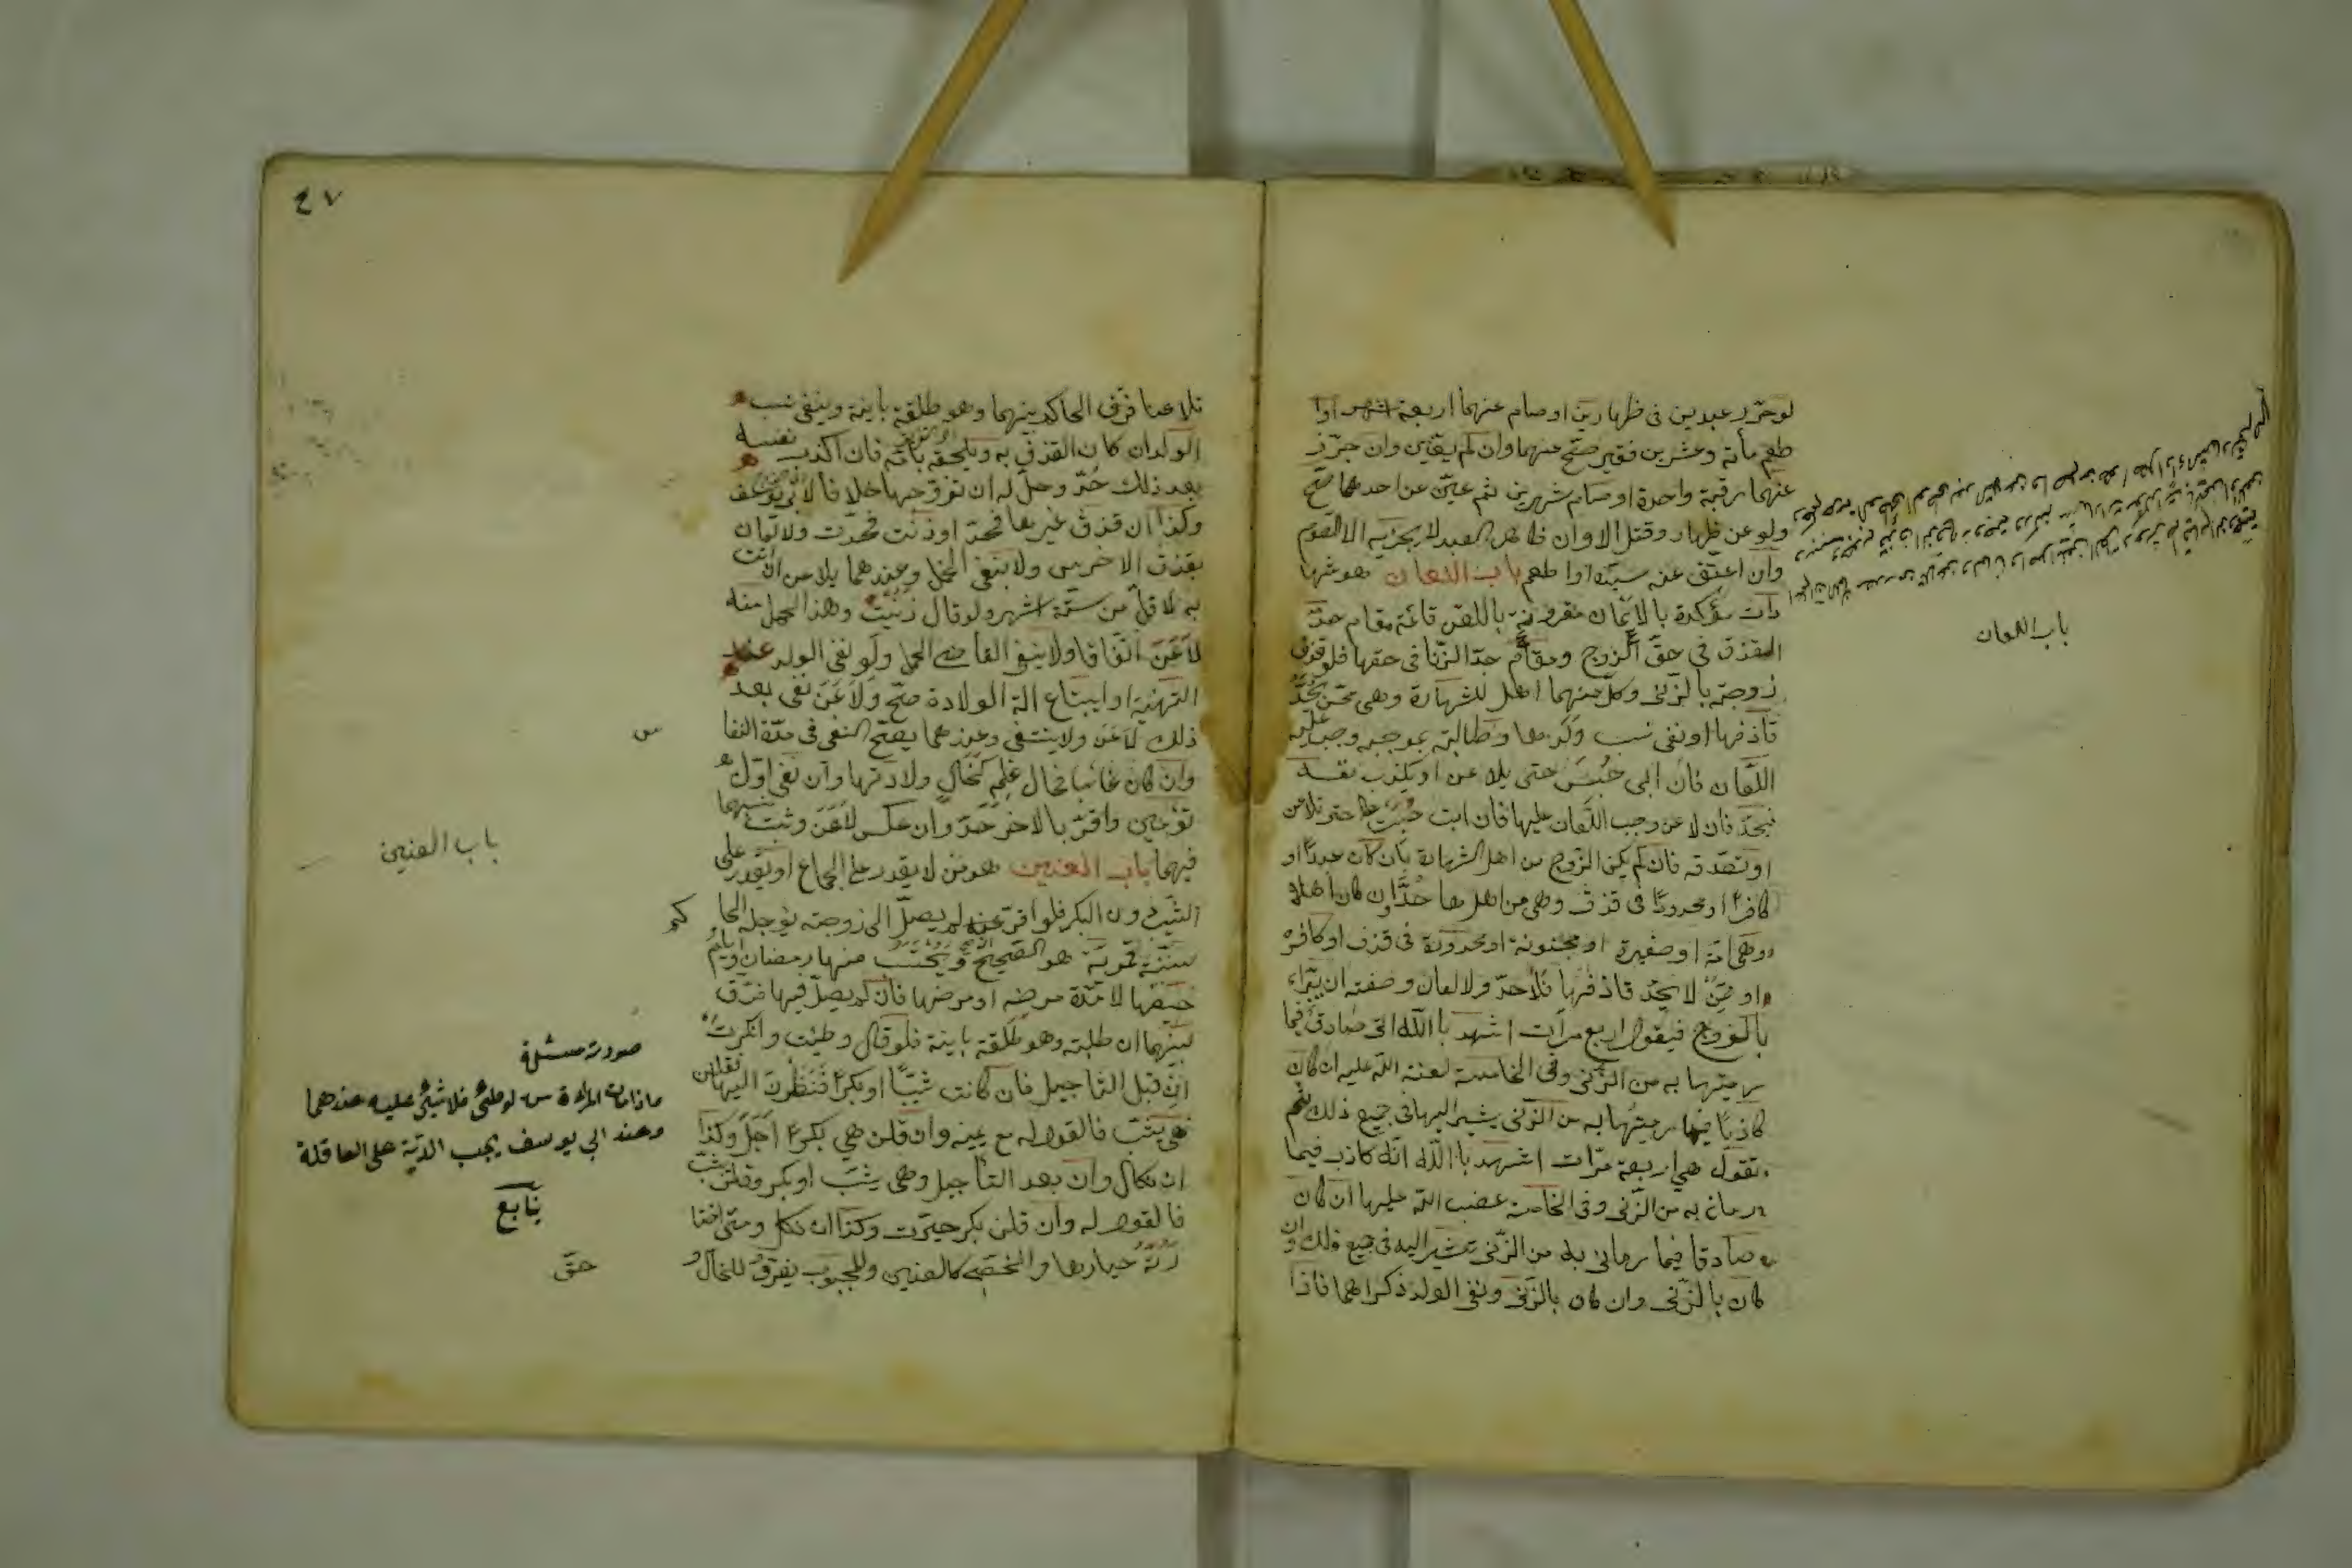 لو حرّر عبدين فى ظهارين او صام عنهما اربعة اشهر او ا
طعم مأية وعشرين فقير صحّ عنهما وان لم يعيّن وان حرّر
عنهما رقبة واحدة او صام شهرين ثم عيّن عن احدهما صحّ
ولو عن ظهار وقتل لا وان ظاهر العبد لا يجزيه الا الصوم
وان اعتق عنه سيّده او اطعم باب اللعان هو شها
دات مؤكدة بالايمان مقرونة باللعن قائمة مقام حدّ
القذف فى حقّ الزوج ومقام حدّ الزنا فى حقها فلو قذف
زوجته بالزنى وكلّ منهما اهل للشهادة وهى ممّن يُحدّ
قاذفها او نفى نسب ولدها وطالبته بموجبه وجب عليه
اللّعان فان ابى حُبِسَ حتى يلاعن او يكذب نفسه
فيحدّ فان لاعن وجب اللّعان عليها فان ابت حُبست حتى تلاعن
او تصدّقه فان لم يكن الزّوج من اهل الشهادة بان كان عبدًا او
كافرًا او محدودًا فى قذف وهى من اهلها حُدَّ وان كان اهلا
وهى امة او صغيرة او مجنونة او محدودة فى قذف او كافرة
او ممّن لا يحدّ قاذفها فلا حدّ ولا لعان وصفته ان يبتداء
بالزوج فيقول اربع مرات اشهد باالله انى صادق فيما
رميتها به من الزّنى وفى الخامسة لعنة الله عليه ان كان
كاذبًا فيما رميتُها به من الزّنى يشير اليها فى جميع ذلك ثم
تقول هى اربعة مرّات اشهد باالله انّه كاذب فيما
رمانى به من الزّنى وفى الخامسة غضب الله عليها ان كان
صادقا فيما رمانى به من الزّنى تشير اليه فى جميع ذلك وان
كان بالزّنى وان كان بالزّنى ونفى الولد ذكراهما فاذا
باب اللعان
٤٧
تلاعنا فرّق الحاكم بينهما وهو طلقة باينة وينفى نسب
الولد ان كان القذف به ويلحقه بامّه فان اكذب نفسه
بعد ذلك حُدّ وحلّ له ان تزوّجها خلافا لابى يوسف
وكذا ان قذف غيرها فحدّ او زنت فحدّت ولا لعان
بقذف الاخرس ولا بنفى الحمل وعندهما يلاعن ان اتت
به لاقلّ من ستّة اشهر ولو قال زنيت وهذا الحمل منه
لاَعَنَ اتّفاقا ولا ينفى القاضى الحمل ولو نفى الولد عند
التهنية او ابتياع الة الولادة صحّ وَلاَعَنَ نفى بعد
ذلك لاَعَنَ ولا ينتفى وعندهما يصحّ النفى فى مدّة النفا
س
وان كان غائبا فحال علمه كحال ولادتها وان نفى اوّل
توءمين واقرّ بالاخر حدّ وان عكس لاَعَنَ وثبت نسبهما
فيهما باب العنين هو من لا يقدر على الجماع او يقدر على
الثيّب دون البكر فلو اقرّ عند لم يصلّ الى زوجته يؤجله الحا
كم
سنة قمريّة هو الصحيح ويُحتسب منها رمضان وايام
حيضها لا مدّة مرضه او مرضها فان لم يصلّ فيها فرّق
بينهما ان طلبته وهو طلقة باينة فلو قال وطئت وانكرت
ان قبل التاجيل فان كانت ثيّبًا او بكرًا فنظرن اليها فقلن
هى ثيّب فالقول له مع يمينه وان قلن هى بكر اُجّلَ وكذا
ان نكل وان بعد التاجيل وهى ثيّب او بكر وقلن ثيّب
فالقول له وان قلن بكر خيّرت وكذا ان نكل ومتى اختا
رته خيارها والخصى كالعنين وللمجبوب يفرّق للحال و
باب العنين
صورة مسئلة
ماذا ماتت المراءة من لو طئى فلا شئى عليه عندهما
وعند ابي يوسف يجب الديّة على العاقلة
ينابع
حقّ